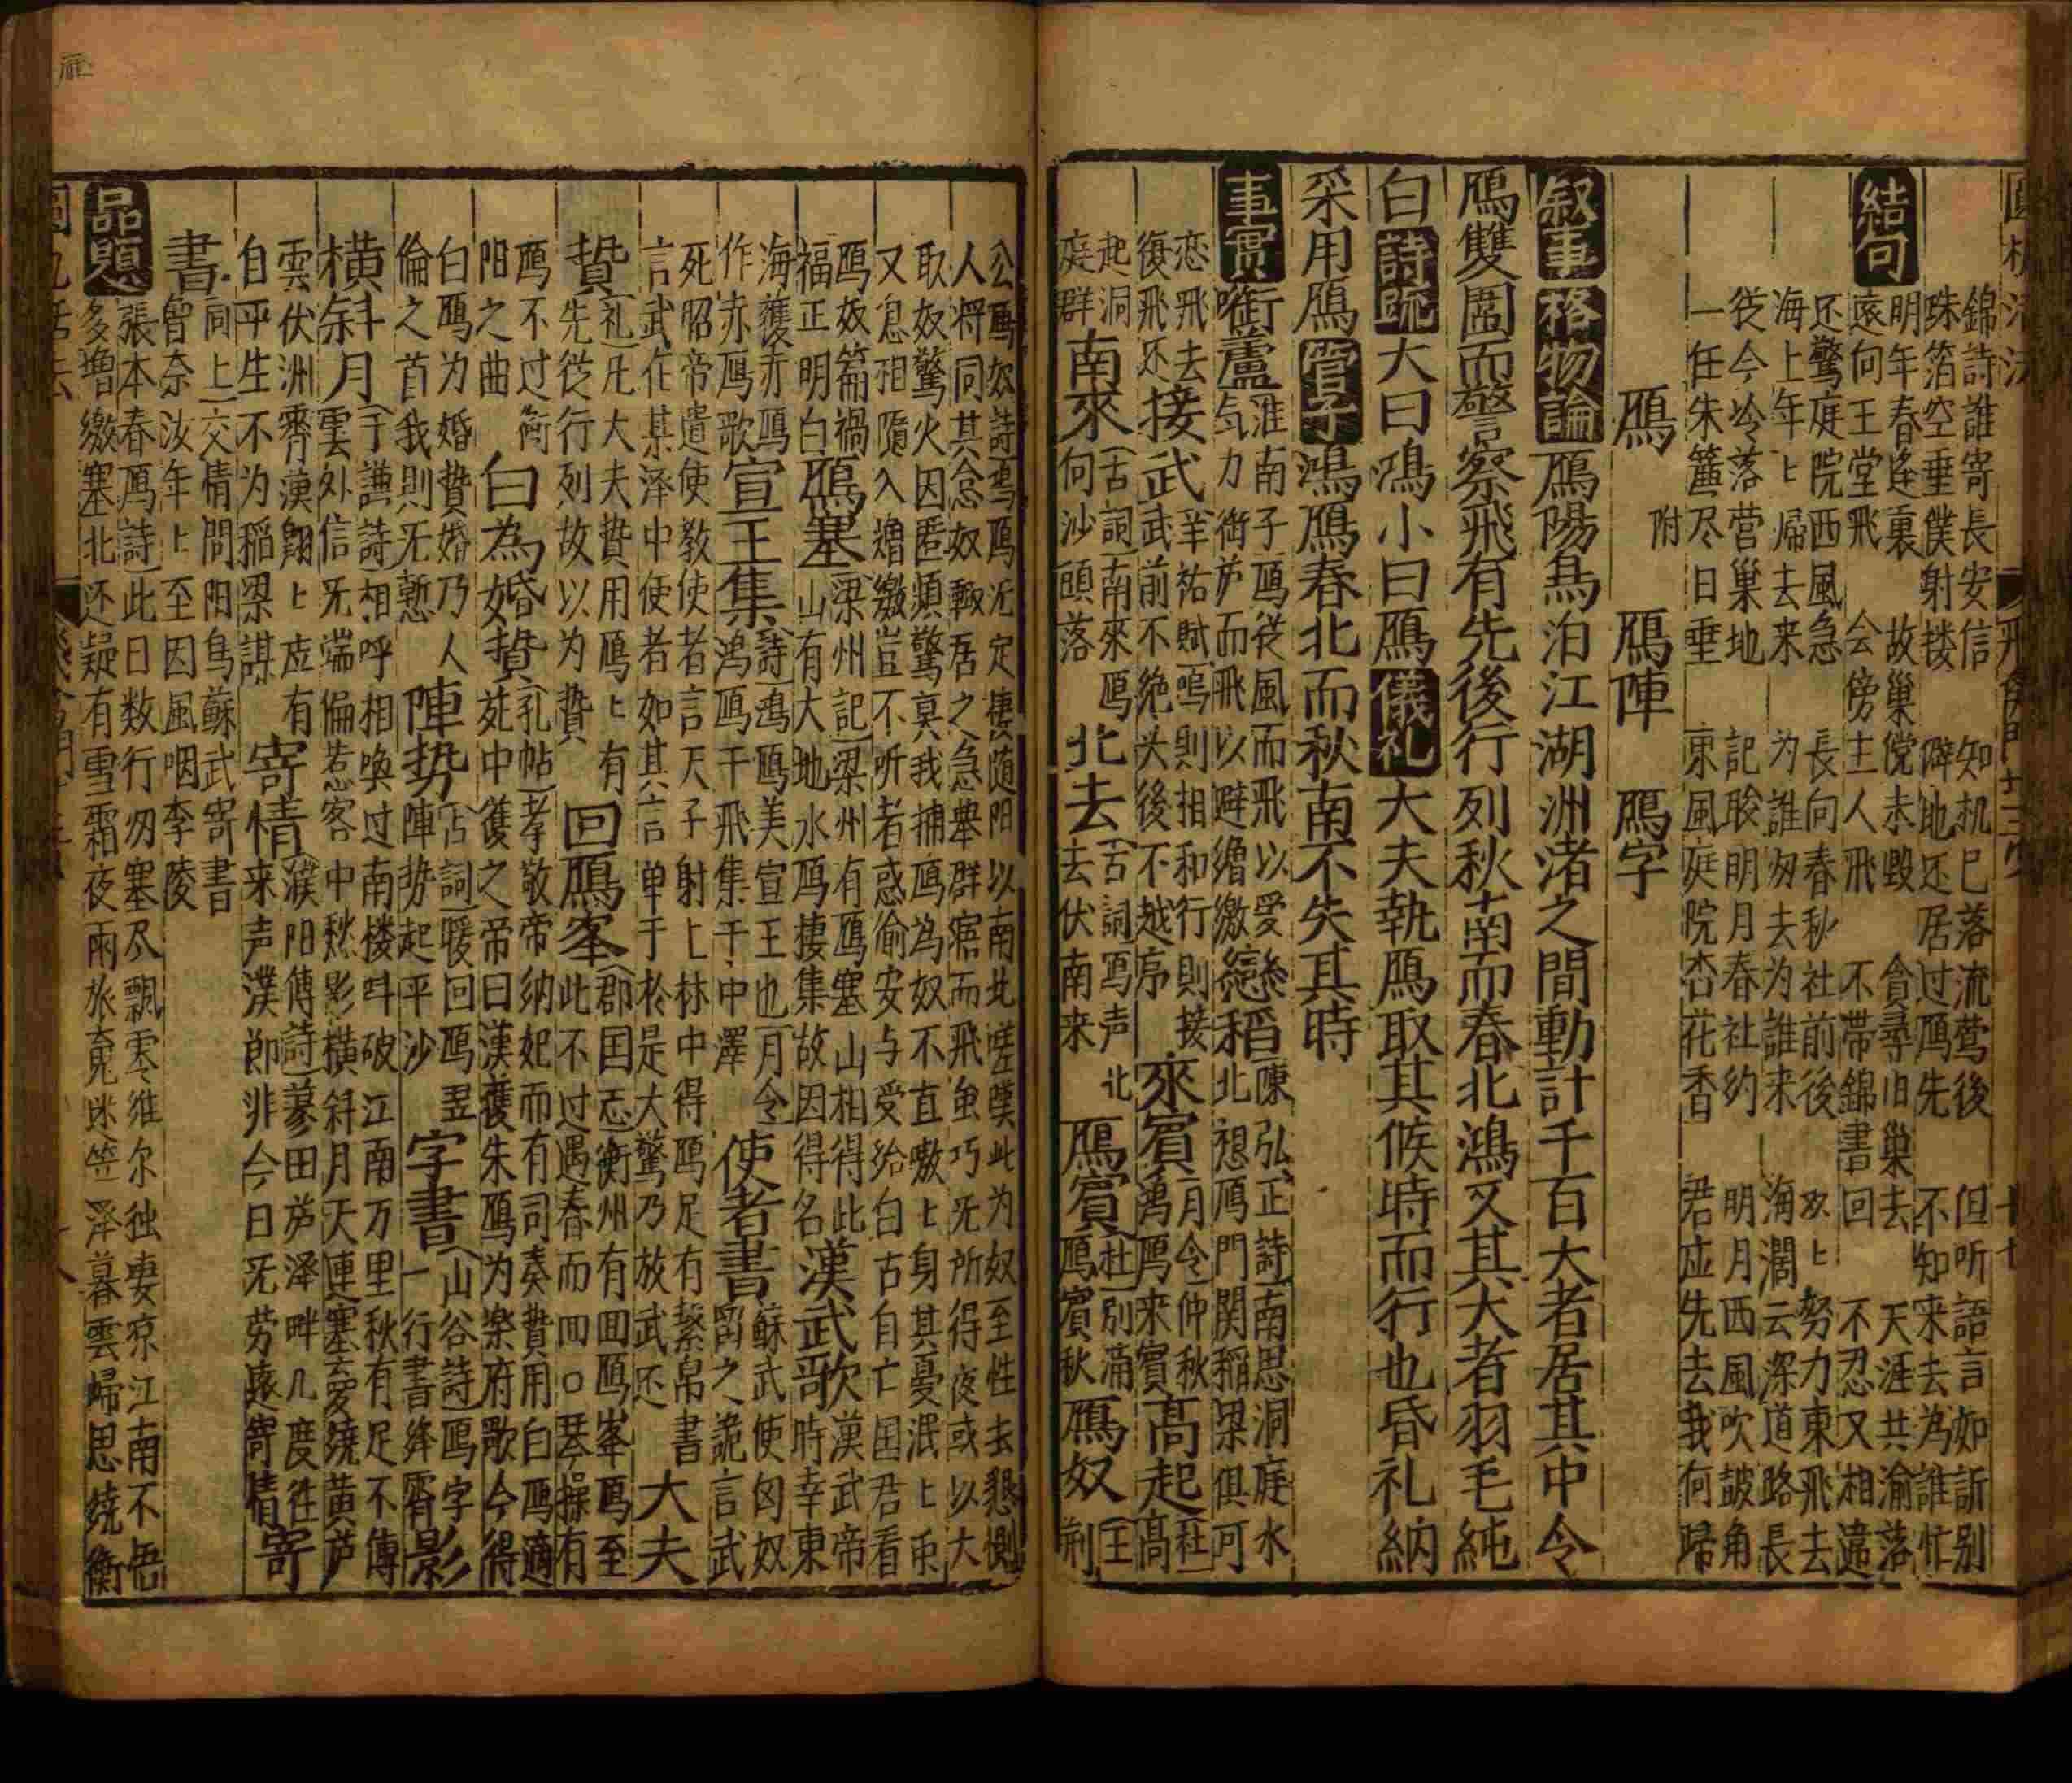 結句
錦詩誰寄長安信 知机已落流莺後 但听語言如訴别
珠箔空垂僕射楼 僻地还居过鴈先 不知来去為誰忙
明年春运裏 故巢傥未毀 貪尋旧巢去 天涯共渝落
遠向王堂飛 会傍主人飛 不帶錦書回 不忍又相違
还驚庭院西風急 長向春秋社前後 努力東飛去
海上年〻帰去来 为誰匆去为誰来 海濶云深道路長
従今冷落营巢地 記聆明月春社约 明月西風吹皷角
一任朱簾尽日垂 東風庭院杏花香 君应先去我何歸
鴈 附 鴈陣 鴈字
叙事 格物論 鴈陽鳥泊江湖洲渚之間動計千百大者居其中令
鴈雙圄而警察飛有先後行列秋南而春北鴻又其大者羽毛純
白 詩疏 大曰鴻小曰鴈 儀礼 大夫執鴈取其候時而行也昏礼納
采用鴈 管子 鴻鴈春北而秋南不失其時
事實 啣蘆 淮南子鴈従風而飛以爱
气力啣芦而飛以避繒繳 戀稻 陳弘正詩南思洞庭水
北想鴈門関稲梁俱可
恋飛去
復飛还 接武 羊祜賦鳴則相和行則接
武前不絶头後不越序 來賓 月令仲秋
禽鴈来賓 高起 杜高
起洞
庭群 南來 古詞南來鴈
何沙頭落 北去 古詞鴈声北
去伏南来 鴈賓 杜别浦
鴈賓秋 鴈奴 王荆
公鴈奴詩鴈鴈无定棲随阳以南北嗟嘆此为奴至性去懇惻
人将同其念奴輙居之急舉群寤而飛虫巧无所得夜或以大
取奴驚火因匿頻驚莫我捕鴈為奴不直嗷〻身其憂泯〻重
又怠相隨入矰繳豈不听者惑偷安与受给白古自亡国君看
鴈奴篇禍
福正明白 鴈塞 梁州記梁州有鴈塞山相得此
山有大地水鴈棲集故因得名 漢武歌 漢武帝
時幸東
海獲赤鴈
作赤鴈歌 宣王集 詩鴻鴈美宣王也月令
鴻鴈干飛集于中澤 使者書 蘇武使匈奴
留之詭言武
死昭帝遣使教使者言天子射上林中得鴈足有繫帛書
言武在某泽中使者如其言单于於是大驚乃放武还 大夫
贄 礼凡大夫贄用鴈〻有
先從行列故以为贄 回鴈峯 郡国志衡州有回鴈峯鴈至
此不过遇春而回○琴操有
鴈不过衡
阳之曲 白為婚贄 孔帖孝敬帝纳妃而有司奏贄用白鴈適
苑中隻之帝曰漢獲朱鴈为楽府歌今得
白鴈为婚贄婚乃人
倫之首我則无慙 陣势 古詞暖回鴈翌
陣势起平沙 字書 山谷詩鴈字
一行書絳霄 影
横斜月 于謙詩相呼相喚过南楼呌破江南万里秋有足不傳
雲外信无端偏惹客中愁影横斜月天連塞爱繞黄芦
雲伏洲霽漠翺〻应有
自平生不为稲梁謀 寄情 濮阳傅詩蓼田芦泽畔几度徃
来声濮郎非今日无劳遠寄情 寄
書 同上交情問阳鳥蘇武寄書
曾奈汝年〻至因風咽李陵
品題 張本春鴈詩此日数行匆塞尽飄零维尔独凄凉江南不啻
多增繳塞北还疑有雪霜夜雨旅竟迷笠泽暮雲歸思繞衡